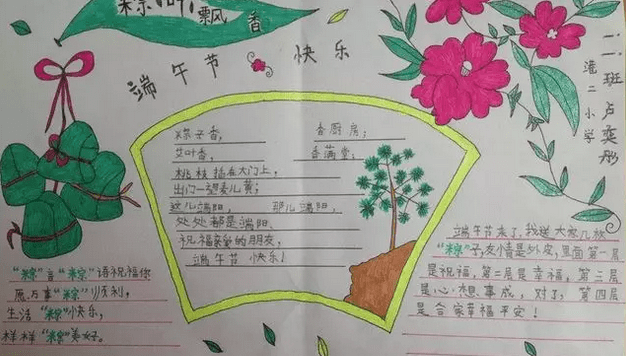 粽叶飘香
端午节 快乐
二二班 卢奕彤
港二小学
粽子香, 香厨房;
艾叶香, 香满堂;
桃枝插在大门上,
出门一望麦儿黄;
这儿端阳, 那儿端阳,
处处都是端阳,
祝福亲爱的朋友,
端午节 快乐!
"粽"言"粽"语祝福你
愿万事"粽"顺利,
生活"粽"快乐,
样样"粽"美好。
端午节来了,我送大家几枚
"粽"子,友情是外皮,里面第一层
是祝福,第二层是幸福,第三层
是心想事成,对了,第四层
是合家幸福平安!